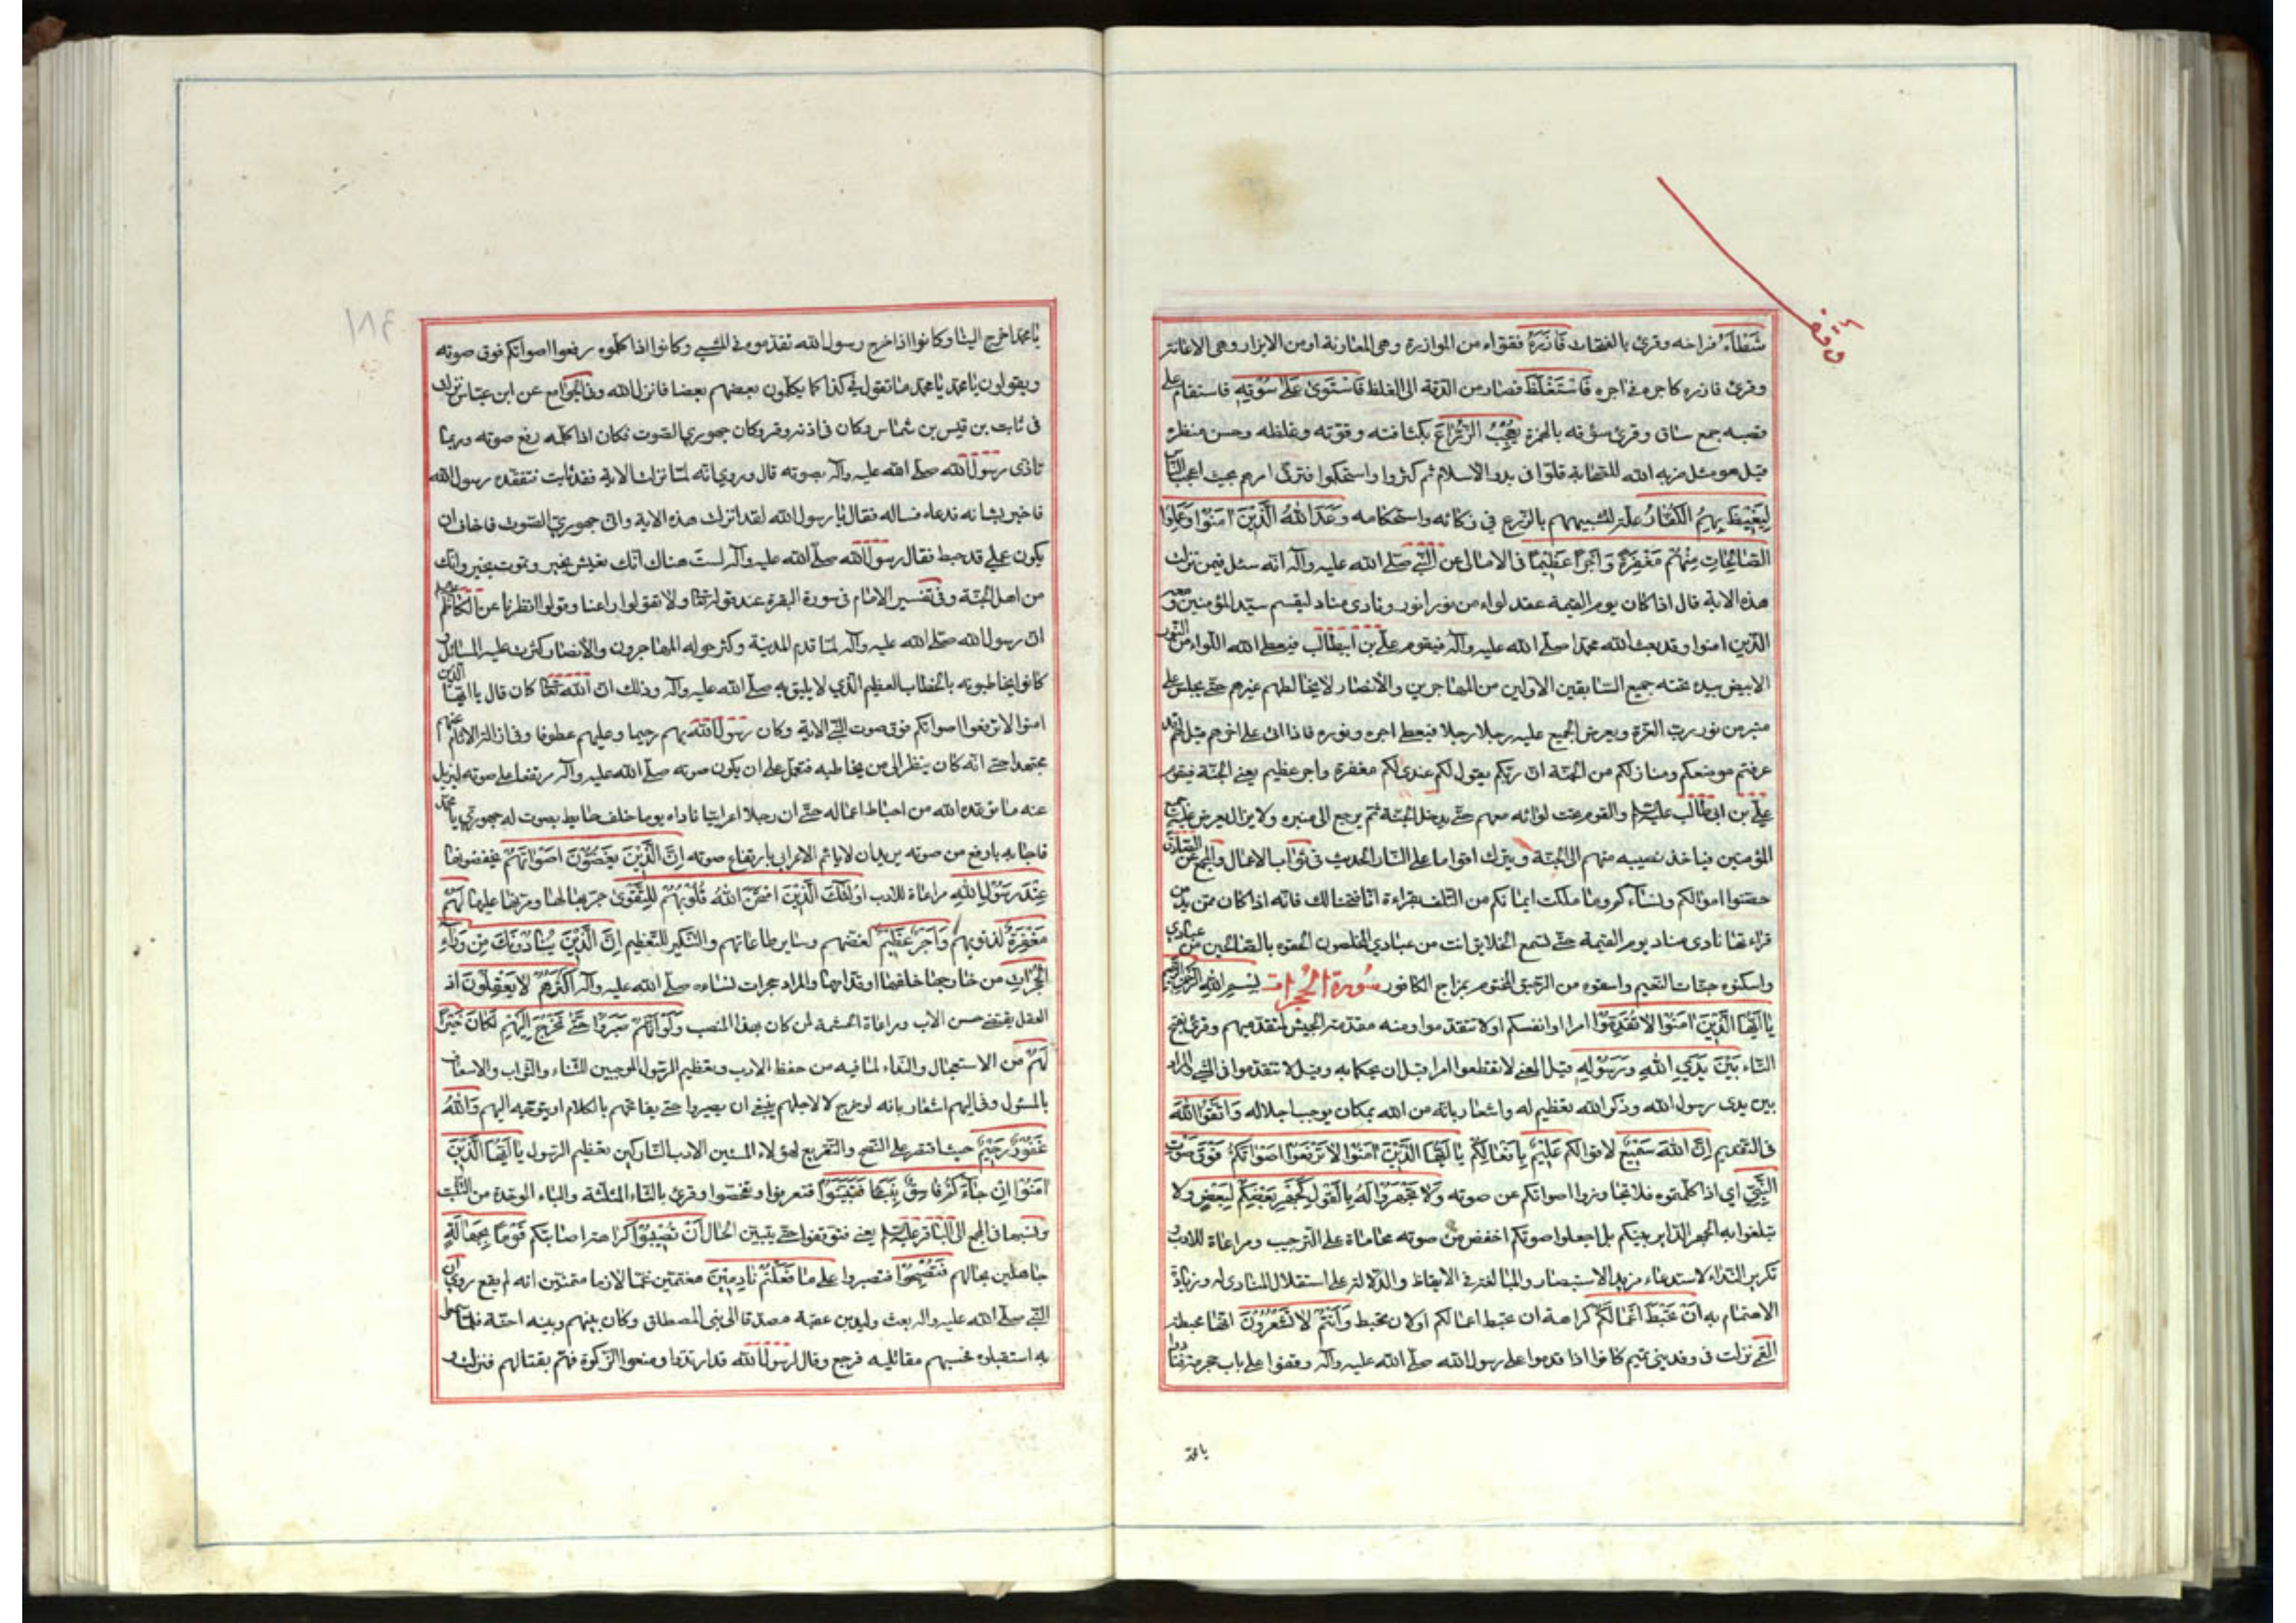 شَطْأَهُ فراخه وقرئ بالفتحات فَآزَرَهُ فقواه من الموازرة وهي المعاونة او من الايزار وهي الاعانة
وقرئ فازره كاجره في اجره فَاسْتَغْلَظَ فصار من الدقة الى الغلظ فَاسْتَوىٰ عَلىٰ سُوقِهِ فاستقام على
قصبه جمع ساق وقرئ سؤقه بالهمزة يُعْجِبُ الزُّرّاعَ بكثافته وقوته وغلظه وحسن منظره
قيل هو مثل ضربه الله للصحابة قلوا في بدو الاسلام ثم كثروا واستحكموا فترقى امرهم بحيث اعجب الناس
لِيَغيظَ بِهِمُ الْكُفّارَ علة لتشبيههم بالزرع في زكائه واستحكامه وَعَدَ اللهُ الَّذينَ آمَنُوا وَعَمِلُوا
الصّالِحاتِ مِنْهُمْ مَغْفِرَةً وَاَجْراً عَظيماً في الامالي عن النبي صلى الله عليه وآله انه سئل فيمن نزلت
هذه الاية قال اذا كان يوم القيمة عقد لواء من نور انور ونادى مناد ليقم سيد المؤمنين ومعه
الذين امنوا وقد بعث الله محمدا صلى الله عليه وآله فيقوم علي بن ابيطالب فيعطى الله اللواء من النور
الابيض بيده تحته جميع السابقين الاولين من المهاجرين والانصار لا يخالطهم غيرهم حتى يجلس على
منبر من نور رب العزة ويعرض الجميع عليه رجلا رجلا فيعطى اجره ونوره فاذا اتى على اخرهم قيل لهم قد
عرفتم موضعكم ومنازلكم من الجنة ان ربكم يقول لكم عندي لكم مغفرة واجر عظيم يعني الجنة فيقوم
علي بن ابي طالب عليه السلم والقوم تحت لوائه معهم حتى يدخل الجنة ثم يرجع الى منبره ولا يزال يعرض عليه جميع
المؤمنين فياخذ نصيبه منهم الى الجنة ويترك اقواما على النار الحديث في ثواب الاعمال والمجمع عن الصادق
حصنوا اموالكم ونساءكم وما ملكت ايمانكم من التلف بقراءة انا فتحنا لك فانه اذا كان ممن يدمن
قراءتها نادى مناد يوم القيمة حتى تسمع الخلايق انت من عبادي المخلصين الحقوه بالصالحين من عبادي
واسكنوه جنات النعيم واسقوه من الرحيق المختوم بمزاج الكافور سُورة الحُجُرات بِسْمِ اللهِ الرَّحْمٰنِ الرَّحيمِ
يا اَيُّهَا الَّذينَ آمَنُوا لا تُقَدِّمُوا امرا او انفسكم او لا تتقدموا ومنه مقدمة الجيش لمتقدميهم وقرئ بفتح
التاء بَيْنَ يَدَيِ اللهِ وَرَسُولِهِ قيل المعنى لا تقطعوا امرا قبل ان يحكما به وقيل لا تتقدموا في المشي والمراد
بين يدى رسول الله وذكر الله تعظيم له واشعار بانه من الله بمكان يوجب اجلاله وَاتَّقُوا اللهَ
في التقديم اِنَّ اللهَ سَميعٌ لاقوالكم عَليمٌ بافعالكم يا اَيُّهَا الَّذينَ آمَنُوا لا تَرْفَعُوا اَصْواتَكُمْ فَوْقَ صَوْتِ
النَّبِيِّ اي اذا كلمتموه فلا تجاوزوا اصواتكم عن صوته وَلا تَجْهَرُوا لَهُ بِالْقَوْلِ كَجَهْرِ بَعْضِكُمْ لِبَعْضٍ ولا
تبلغوا به الجهر الداير بينكم بل اجعلوا صوتكم اخفض من صوته محاماة على الترحيب ومراعاة للادب و
تكرير النداء لاستدعاء مزيد الاستبصار والمبالغة في الايقاظ والدلالة على استقلال المنادى له وزيادة
الاهتمام به اَنْ تَحْبَطَ اَعْمالُكُمْ كراهة ان تحبط اعمالكم او لان تحبط وَاَنْتُمْ لا تَشْعُرُونَ انها محبطة
القمي نزلت في وفد بني تميم كانوا اذا قدموا على رسول الله صلى الله عليه وآله وقفوا على باب حجرته فنادوا
يا محمد
يا محمد اخرج الينا وكانوا اذا خرج رسول الله تقدموه في المشي وكانوا اذا كلموه رفعوا اصواتكم فوق صوته
ويقولون يا محمد يا محمد ما تقول في كذا كما يكلمون بعضهم بعضا فانزل الله وفي الجوامع عن ابن عباس نزلت
في ثابت بن قيس بن شماس وكان في اذنه وقر وكان جهوري الصوت فكان اذا كلمه رفع صوته وربما
تاذى رسول الله صلى الله عليه وآله بصوته قال وروي انه لما نزلت الاية فقد ثابت فتفقده رسول الله
فاخبر بشانه فدعاه فساله فقال يا رسول الله لقد انزلت هذه الاية واني جهوري الصوت فاخاف ان
يكون عملي قد حبط فقال رسول الله صلى الله عليه وآله لست هناك انك تعيش بخير وتموت بخير وانك
من اهل الجنة وفي تفسير الامام في سورة البقرة عند قوله تعالى ولا تقولوا راعنا وقولوا انظرنا عن الكاظم
ان رسول الله صلى الله عليه وآله لما قدم المدينة وكثر حوله المهاجرون والانصار وكثرت عليه المسائل و
كانوا يخاطبونه بالخطاب العظيم الذي لا يليق به صلى الله عليه وآله وذلك ان الله تعالى كان قال يا ايها الذين
امنوا لا ترفعوا اصواتكم فوق صوت النبي الاية وكان رسول الله بهم رحيما وعليهم عطوفا وفي ازالة الاثام عنهم
مجتهدا حتى انه كان ينظر الى من يخاطبه فتعمل على ان يكون صوته صلى الله عليه وآله مرتفعا على صوته ليزيل
عنه ما توعده الله من احباط اعماله حتى ان رجلا اعرابيا ناداه يوما خلف حايط بصوت له جهوري يا محمد
فاجابه بارفع من صوته يريد ان لا ياثم الاعرابي بارتفاع صوته اِنَّ الَّذينَ يَغُضُّونَ اَصْواتَهُمْ يخفضونها
عِنْدَ رَسُولِ اللهِ مراعاة للادب اُولٰئِكَ الَّذينَ امْتَحَنَ اللهُ قُلُوبَهُمْ لِلتَّقْوىٰ جربها لها ومرنها عليها لَهُمْ
مَغْفِرَةٌ لذنوبهم وَاَجْرٌ عَظيمٌ لغضهم وساير طاعاتهم والتنكير للتعظيم اِنَّ الَّذينَ يُنادُونَكَ مِنْ وَراءِ
الْحُجُراتِ من خارجها خلفها او قدامها والمراد حجرات نساءه صلى الله عليه وآله اَكْثَرُهُمْ لا يَعْقِلُونَ اذ
العقل يقتضي حسن الادب ومراعاة الحشمة لمن كان بهذا المنصب وَلَوْ اَنَّهُمْ صَبَرُوا حَتّىٰ تَخْرُجَ اِلَيْهِمْ لَكانَ خَيْراً
لَهُمْ من الاستعجال والنداء لما فيه من حفظ الادب وتعظيم الرسول الموجبين للثناء والثواب والاسعاف
بالمسئول وفي اليهم اشعار بانه لو خرج لا لاجلهم ينبغي ان يصبروا حتى يفاتحهم بالكلام او يتوجه اليهم وَاللهُ
غَفُورٌ رَحيمٌ حيث اقتصر على النصح والتقريع لهؤلاء المسيئين الادب التاركين تعظيم الرسول يا اَيُّهَا الَّذينَ
آمَنُوا اِنْ جاءَكُمْ فاسِقٌ بِنَبَأٍ فَتَبَيَّنُوا فتعرفوا وتفحصوا وقرئ بالثاء المثلثة والباء الموحدة من التثبت
ونسبها في المجمع الى الباقر عليه السلم يعني فتوقفوا حتى يتبين الحال اَنْ تُصيبُوا كراهة اصابتكم قَوْماً بِجَهالَةٍ
جاهلين بحالهم فَتُصْبِحُوا فتصيروا عَلىٰ ما فَعَلْتُمْ نادِمينَ مغتمين غما لازما متمنين انه لم يقع روي ان
النبي صلى الله عليه وآله بعث وليد بن عقبة مصدقا الى بني المصطلق وكان بينهم وبينه احنة فلما سمعوا
به استقبلوه فحسبهم مقاتليه فرجع وقال لرسول الله قد ارتدوا ومنعوا الزكوة فهم بقتالهم فنزلت و